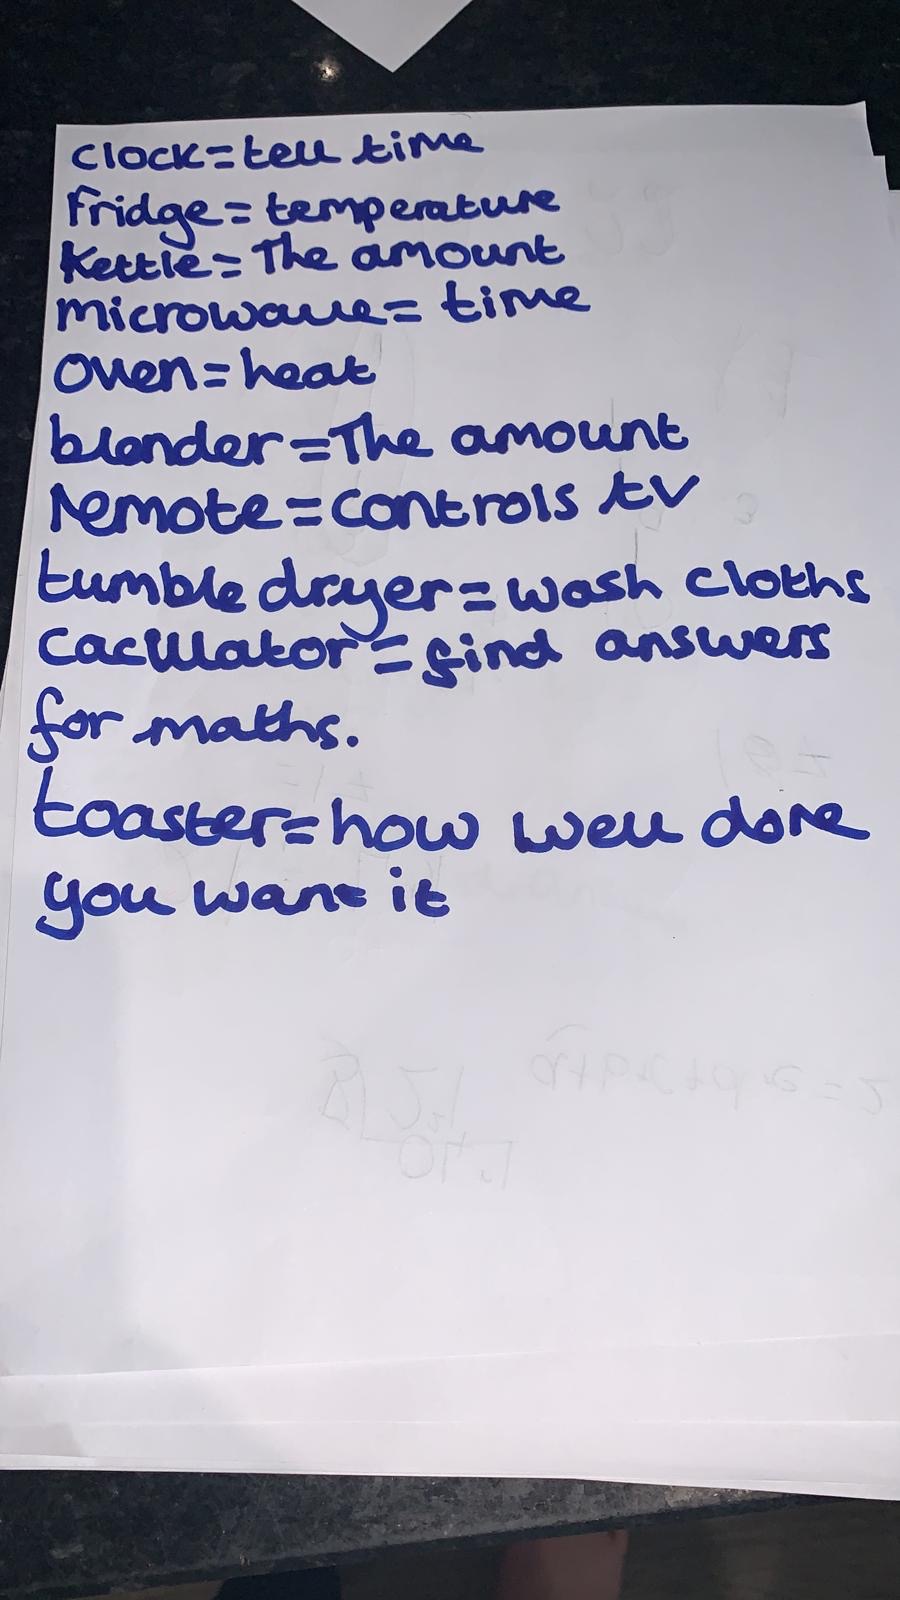 clock=tell time
fridge= temperature
Kettle= The amount
microwave= time
Oven=heat
blender=The amount
remote=controls tv
tumble dryer=wash cloths
cacululator=find answers
for maths.
toaster=how well done
you want it